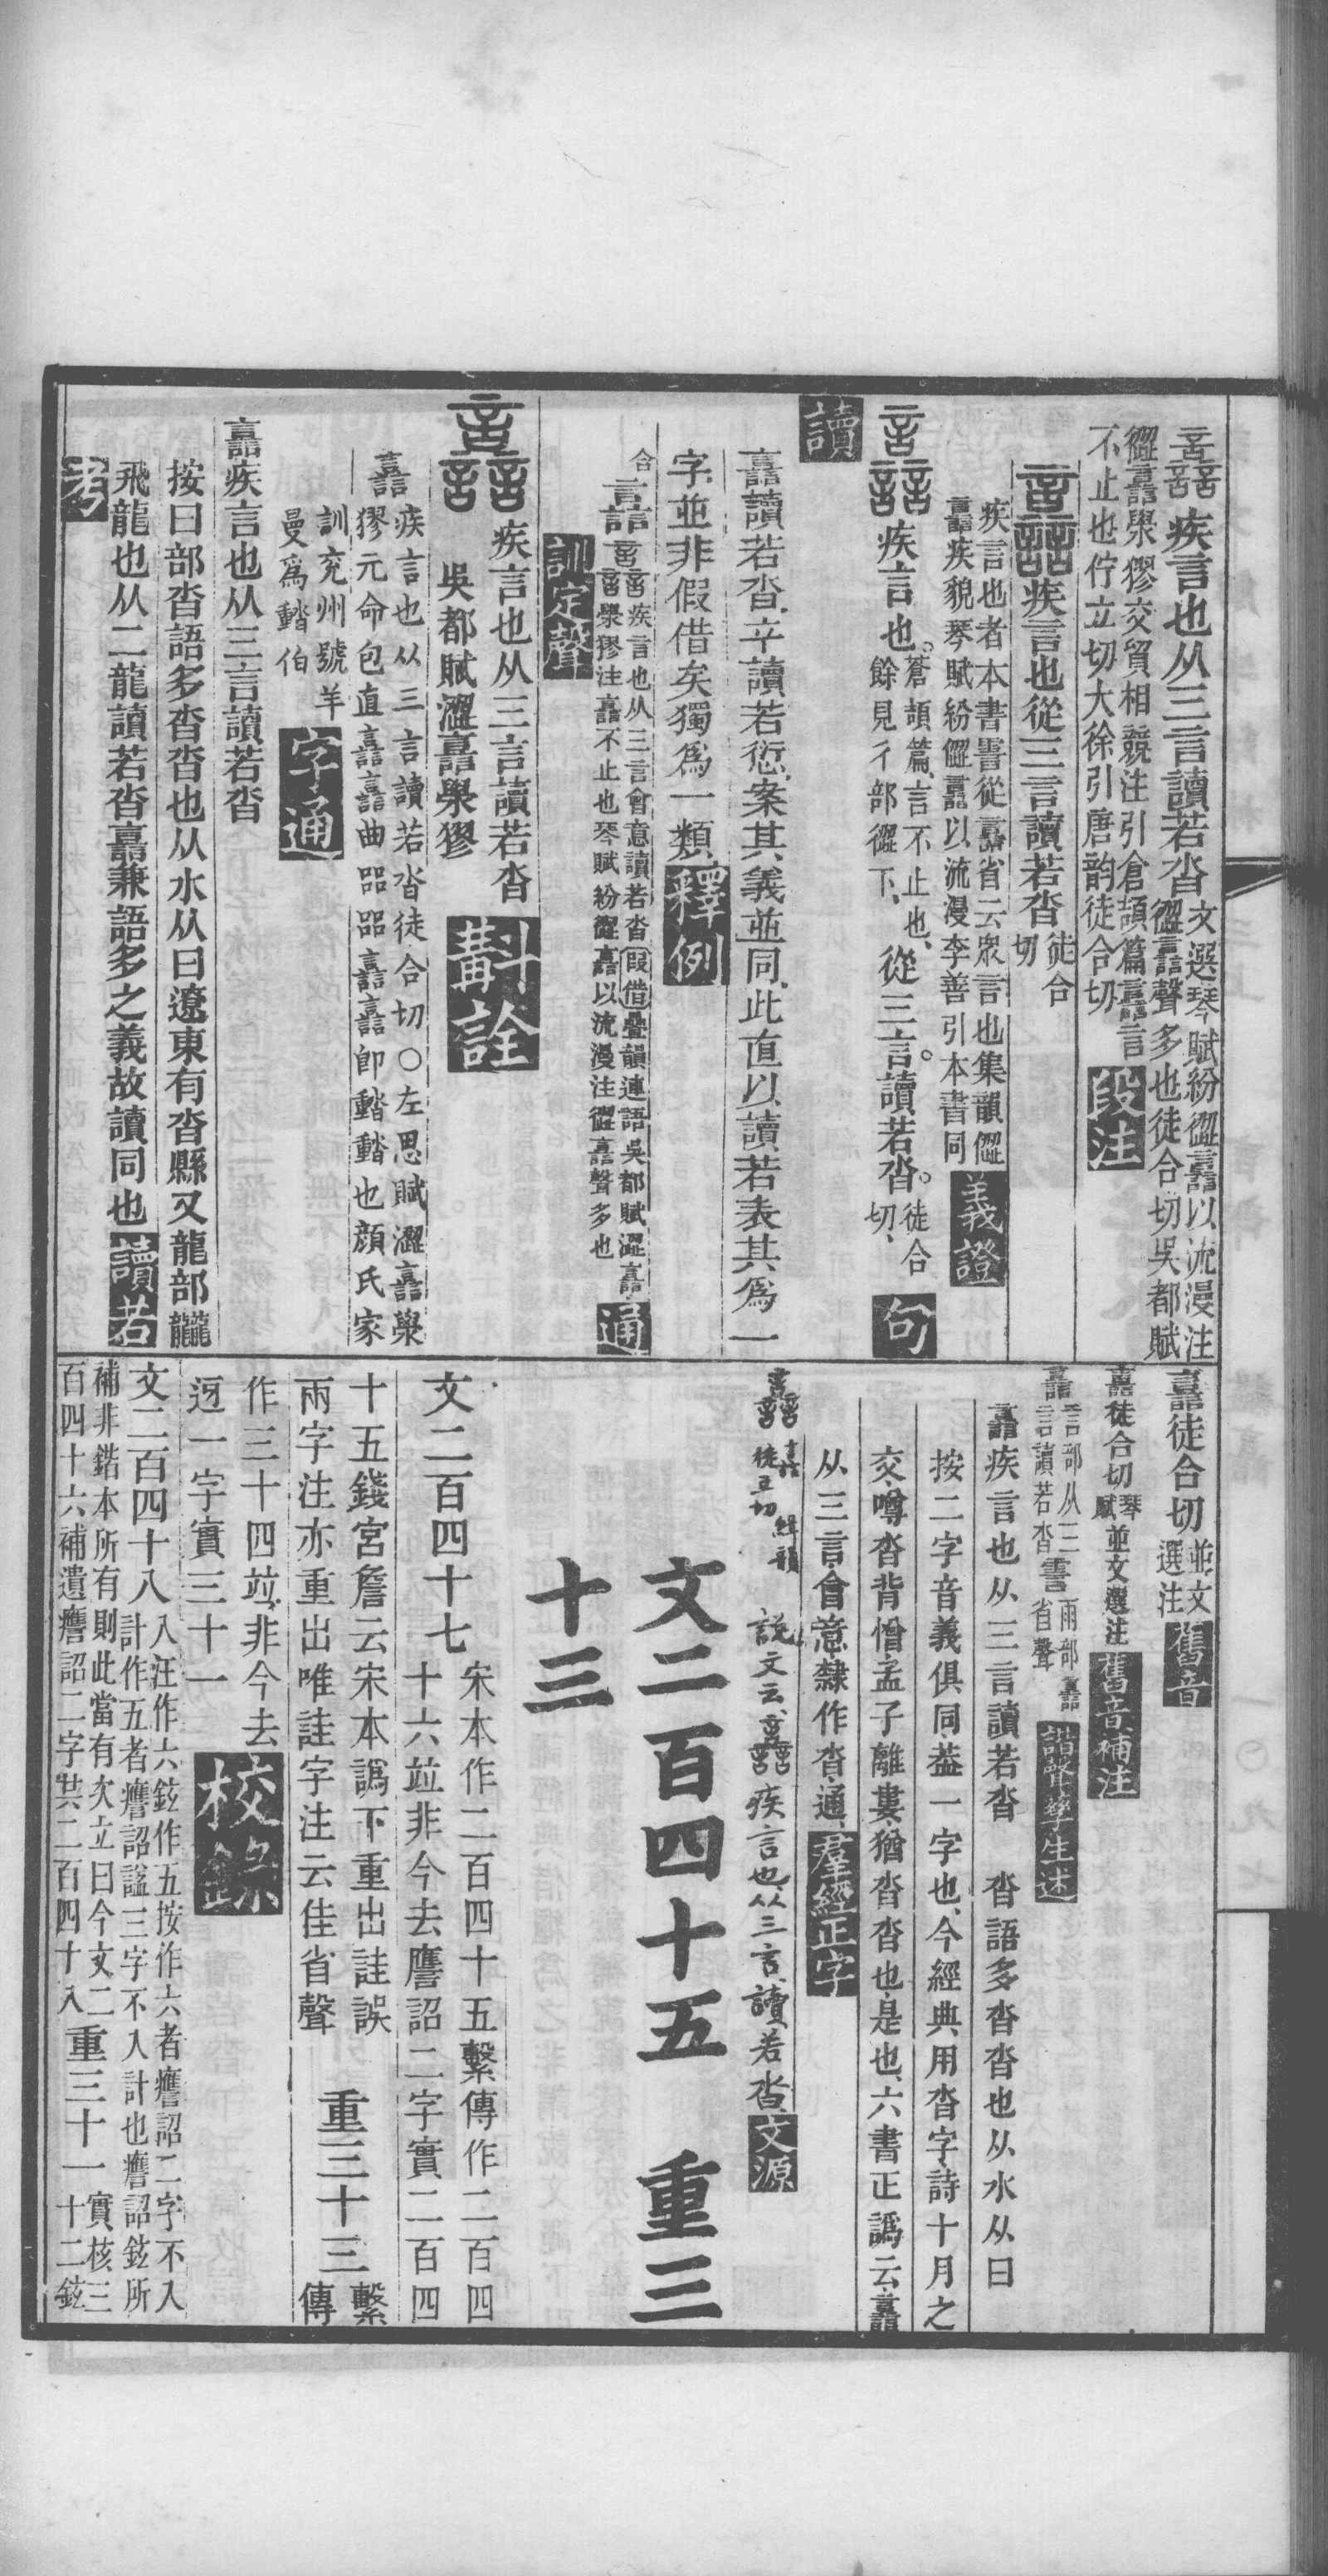 譶疾言也从三言讀若沓
文選琴賦紛㒊譶以流漫注
㒊譶聲多也徒合切吳都賦
㒊譶澩㺒交貿相競注引倉頡篇譶言
不止也佇立切大徐引唐韵徒合切
段注
譶疾言也從三言讀若沓
徒合
切
疾言也者本書䨺從譶省云眾言也集韻㒊
譶疾貌琴賦紛㒊譶以流漫李善引本書同
義證
譶疾言也。
蒼頡篇、言不止也、
餘見彳部㒊下、
從三言。讀若沓。
徒合
切、
句
讀
譶讀若沓、䇂讀若愆、案其義並同、此直以讀若表其為一
字、並非假借矣獨為一類
釋例
譶
譶疾言也从三言會意讀若沓叚借疊韻連語吳都賦澀譶
澩㺒注譶不止也琴賦紛㒊譶以流漫注㒊譶聲多也
通
訓定聲
合
譶疾言也从三言讀若沓
吳都賦澀譶澩㺒
斠詮
譶
疾言也从三言讀若沓徒合切○左思賦澀譶澩
㺒元命包直譶譶曲㗊㗊譶譶卽䵬䵬也顏氏家
訓兖州號羊
曼為䵬伯
字通
譶疾言也从三言讀若沓
按曰部沓語多沓沓也从水从曰遼東有沓縣又龍部龖
飛龍也从二龍讀若沓譶兼語多之義故讀同也
讀若
考
譶徒合切
並文
選注
舊音
譶徒合切
琴
賦
並文選注
舊音補注
譶
言部从三
言讀若沓
䨺
雨部譶
省聲
諧聲孳生述
譶疾言也从三言讀若沓　沓語多沓沓也从水从曰
按二字音義俱同葢一字也、今經典用沓字、詩十月之
交、噂沓背憎、孟子離婁、猶沓沓也、是也、六書正譌云、譶
从三言、會意、隸作沓、通、
羣經正字
譶
譶
緝韻
徒立切
說文云、譶疾言也、从三言、讀若沓、
文源
文二百四十五　重三
十三
文二百四十七
宋本作二百四十五繫傳作二百四
十六竝非今去譍詔二字實二百四
十五錢宮詹云宋本譌下重出詿誤
兩字注亦重出唯詿字注云佳省聲
重三十三
繫
傳
作三十四竝非今去
逎一字實三十一
校錄
文二百四十八
入汪作六鉉作五按作六者譍詔二字不入
計作五者譍詔謚三字不入計也譍詔鉉所
補非鍇本所有則此當有次立曰今文二
百四十六補遺譍詔二字共二百四十入
重三十一
實核三
十二鉉